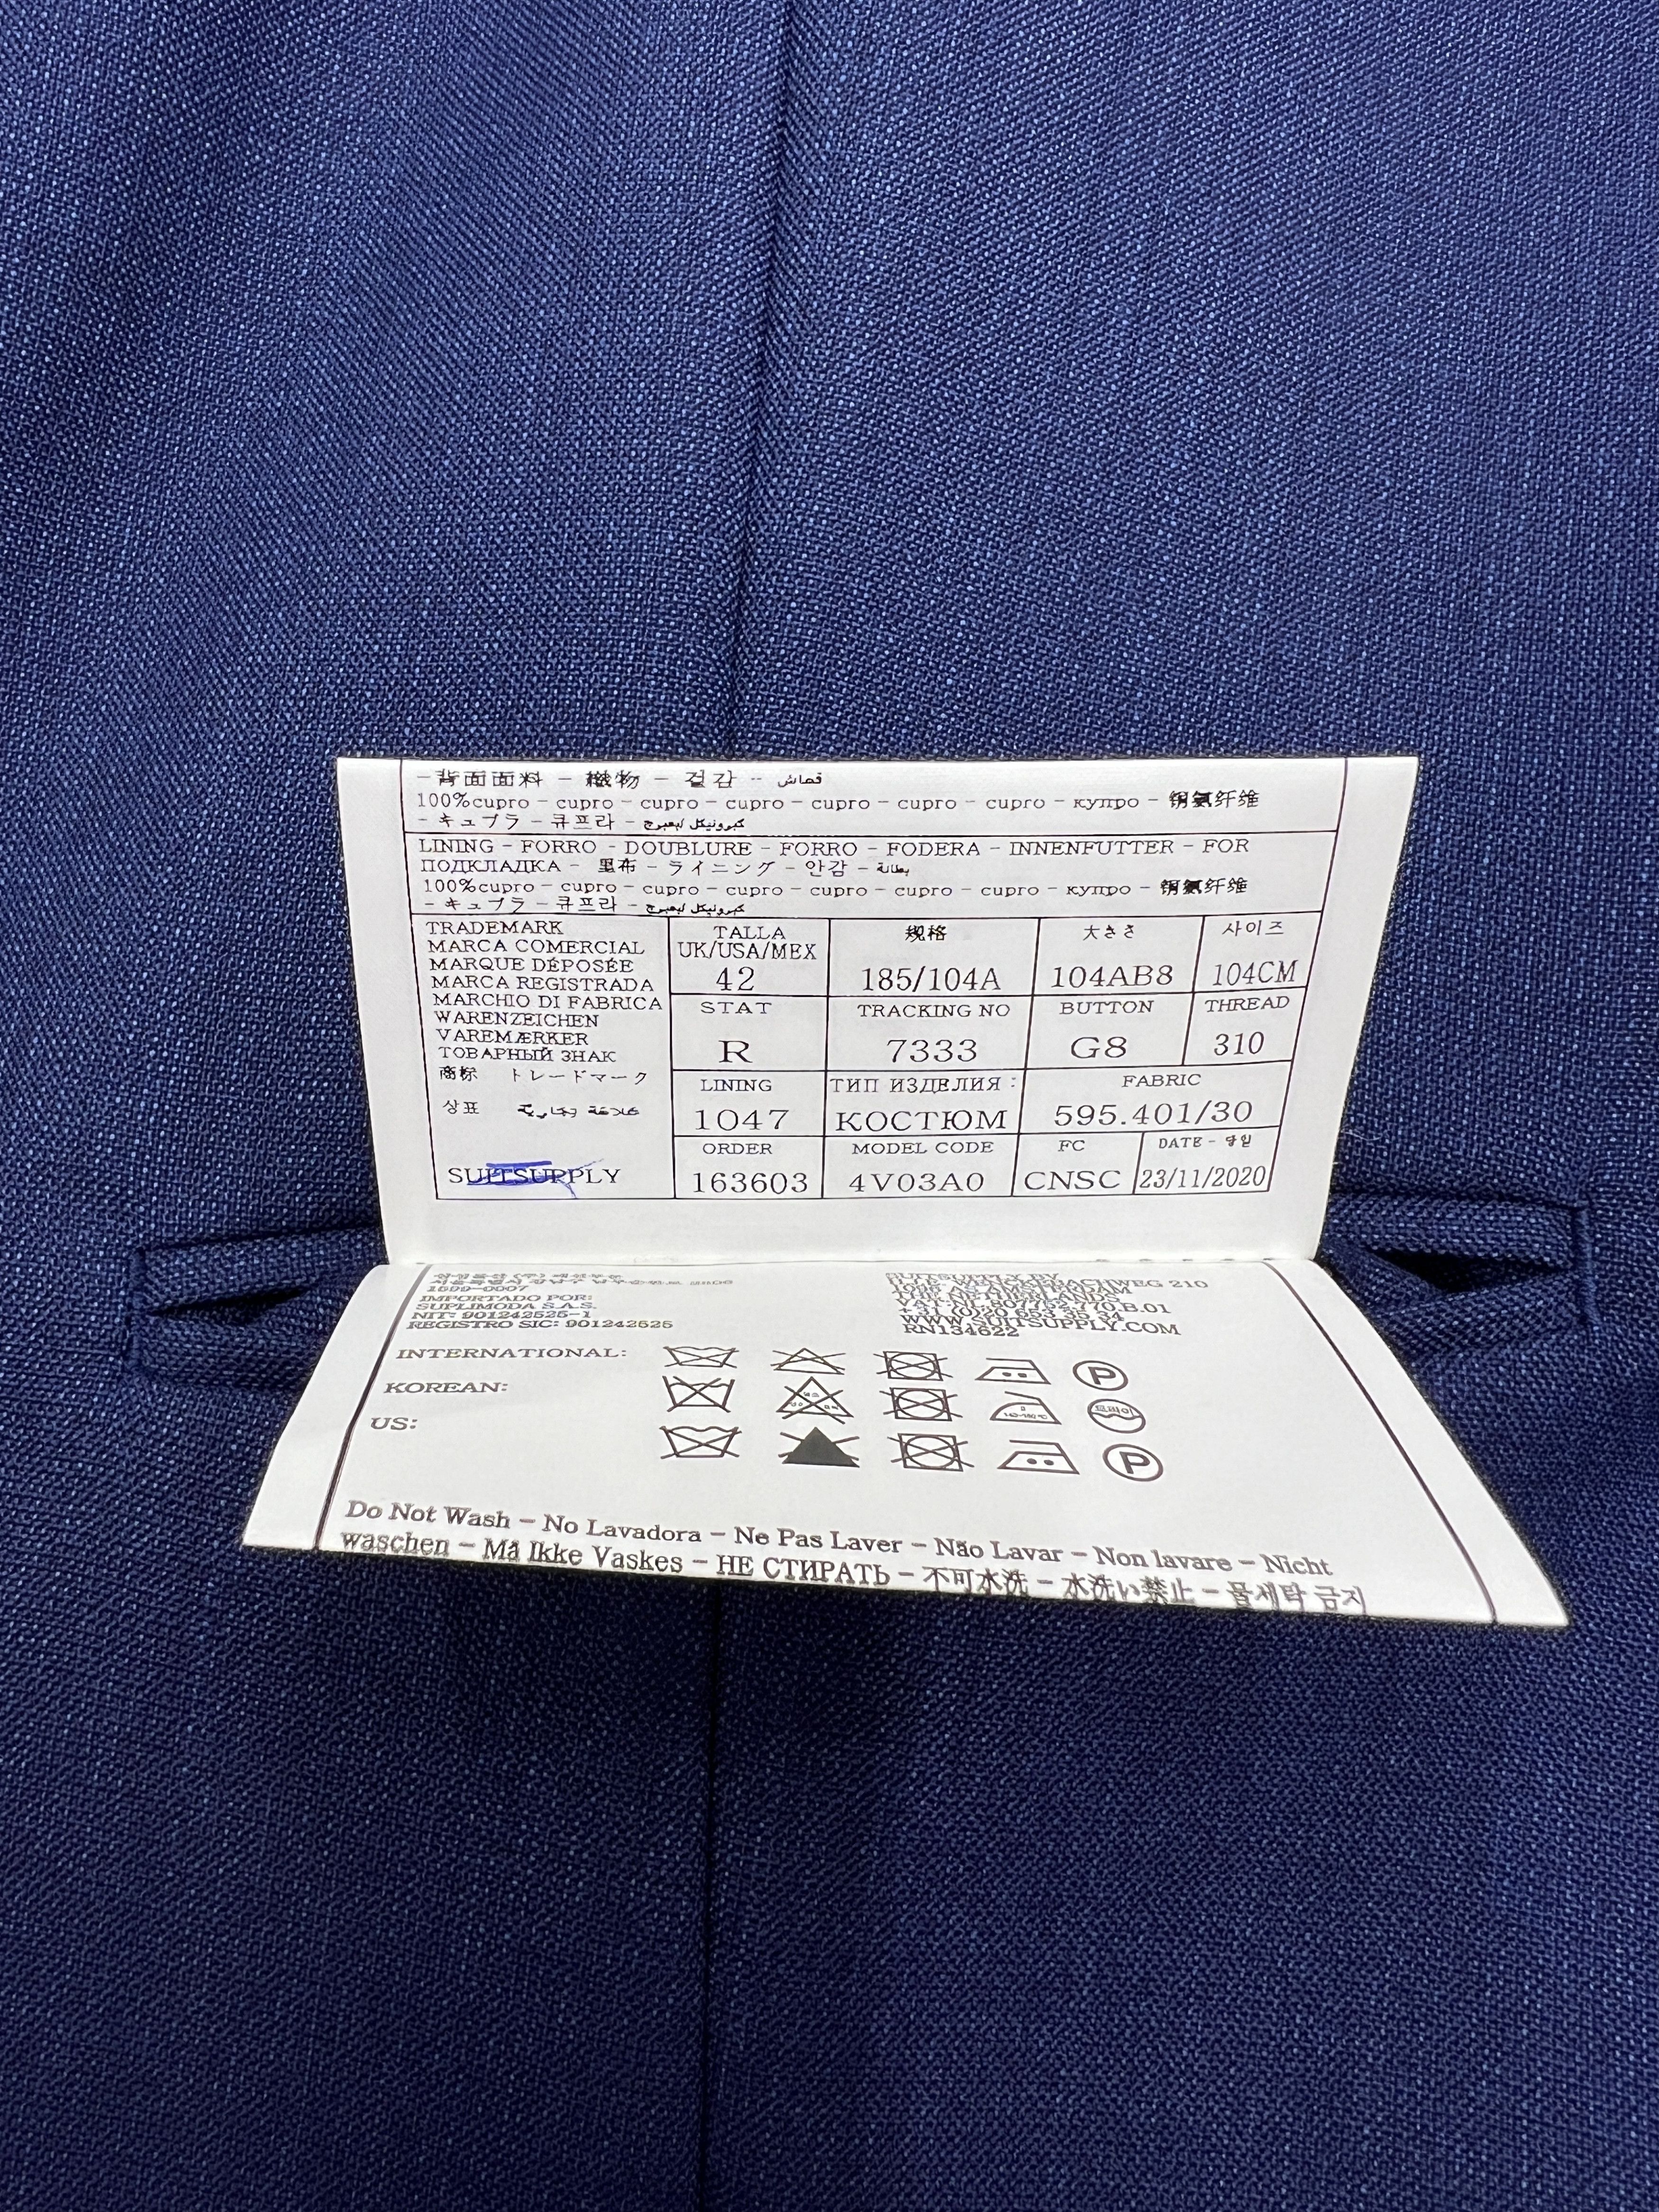 - 背面面料 - 織物 - 겉감 - قماش
100%cupro - cupro - cupro - cupro - cupro - cupro - cupro - купро - 铜氨纤维
- キュプラ - 큐프라 -
LINING - FORRO - DOUBLURE - FORRO - FODERA - INNENFUTTER - FOR
ПОДКЛАДКА - 里布 - ライニング - 안감 - بطانة
100%cupro - cupro - cupro - cupro - cupro - cupro - cupro - купро - 铜氨纤维
- キュプラ - 큐프라 -
TRADEMARK
MARCA COMERCIAL
MARQUE DÉPOSÉE
MARCA REGISTRADA
MARCHIO DI FABRICA
WARENZEICHEN
VAREMÆRKER
ТОВАРНЫЙ ЗНАК
商标 トレードマーク
상표
SUITSUPPLY
TALLA 规格 大きさ 사이즈
UK/USA/MEX
42 185/104A 104AB8 104CM
STAT TRACKING NO BUTTON THREAD
R 7333 G8 310
LINING ТИП ИЗДЕЛИЯ : FABRIC
1047 КОСТЮМ 595.401/30
ORDER MODEL CODE FC DATE -
163603 4V03A0 CNSC 23/11/2020
1599-0007
IMPORTADO POR:
SUPLIMODA S.A.S.
NIT: 901242525-1
REGISTRO SIC: 901242525
WWW.SUITSUPPLY.COM
RN134622
INTERNATIONAL: P
KOREAN: 드라이
US: P
Do Not Wash - No Lavadora - Ne Pas Laver - Não Lavar - Non lavare - Nicht
waschen - Må Ikke Vaskes - НЕ СТИРАТЬ - 不可水洗 - 水洗い禁止 - 물세탁 금지